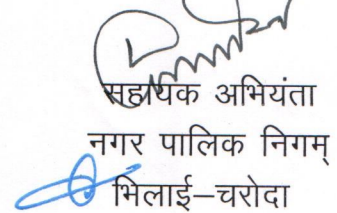 सहायक अभियंता
नगर पालिक निगम्
भिलाई–चरोदा